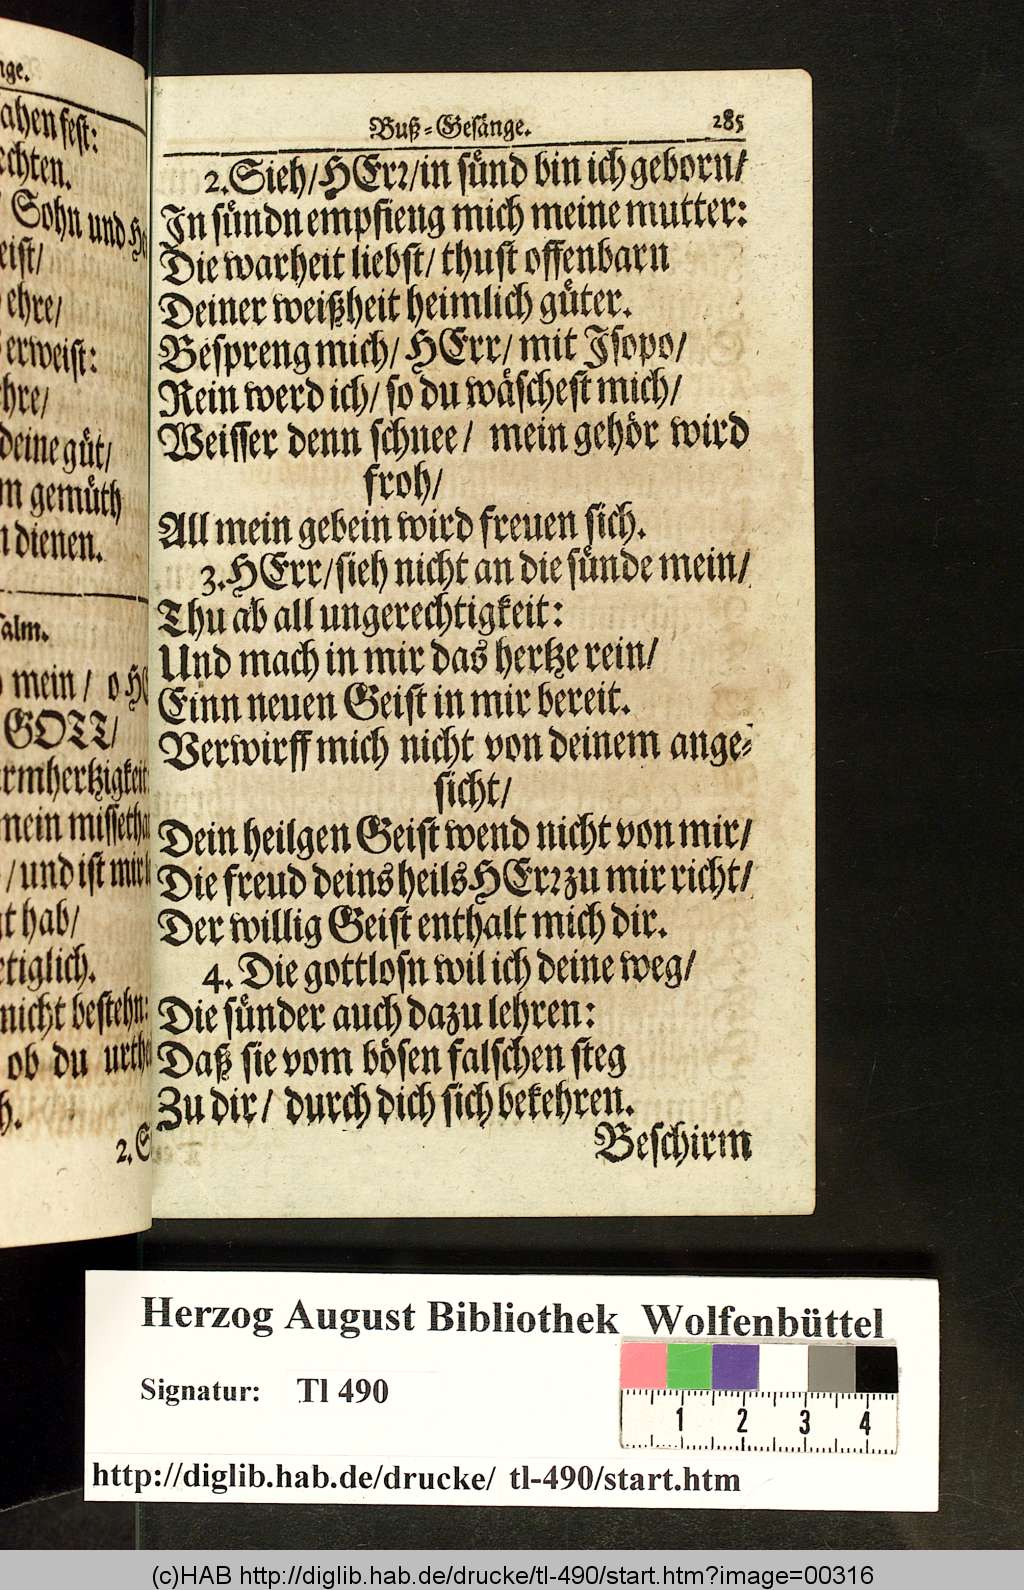 nge.
ahen fest:
echten.
Sohn und
eist/
ehre/
erweist:
ehre/
deine güt/
m gemüth
n dienen.
salm.
mein / o
GOTT/
armhertzigkeit
mein misseth
/ und ist mir
gt hab/
etiglich.
nicht bestehn:
ob du urth
h.
2. S
Buß-Gesänge. 285
2. Sieh/ HErr/ in sünd bin ich geborn/
In sündn empfieng mich meine mutter:
Die warheit liebst/ thust offenbarn
Deiner weißheit heimlich güter.
Bespreng mich/ HErr/ mit Isopo/
Rein werd ich/ so du wäschest mich/
Weisser denn schnee/ mein gehör wird
froh/
All mein gebein wird freuen sich.
3. HErr/ sieh nicht an die sünde mein/
Thu ab all ungerechtigkeit:
Und mach in mir das hertze rein/
Einn neuen Geist in mir bereit.
Verwirff mich nicht von deinem ange-
sicht/
Dein heilgen Geist wend nicht von mir/
Die freud deins heils HErr zu mir richt/
Der willig Geist enthalt mich dir.
4. Die gottlosn wil ich deine weg/
Die sünder auch dazu lehren:
Daß sie vom bösen falschen steg
Zu dir/ durch dich sich bekehren.
Beschirm
Herzog August Bibliothek Wolfenbüttel
Signatur: Tl 490
1 2 3 4
http://diglib.hab.de/drucke/ tl-490/start.htm
(c)HAB http://diglib.hab.de/drucke/tl-490/start.htm?image=00316